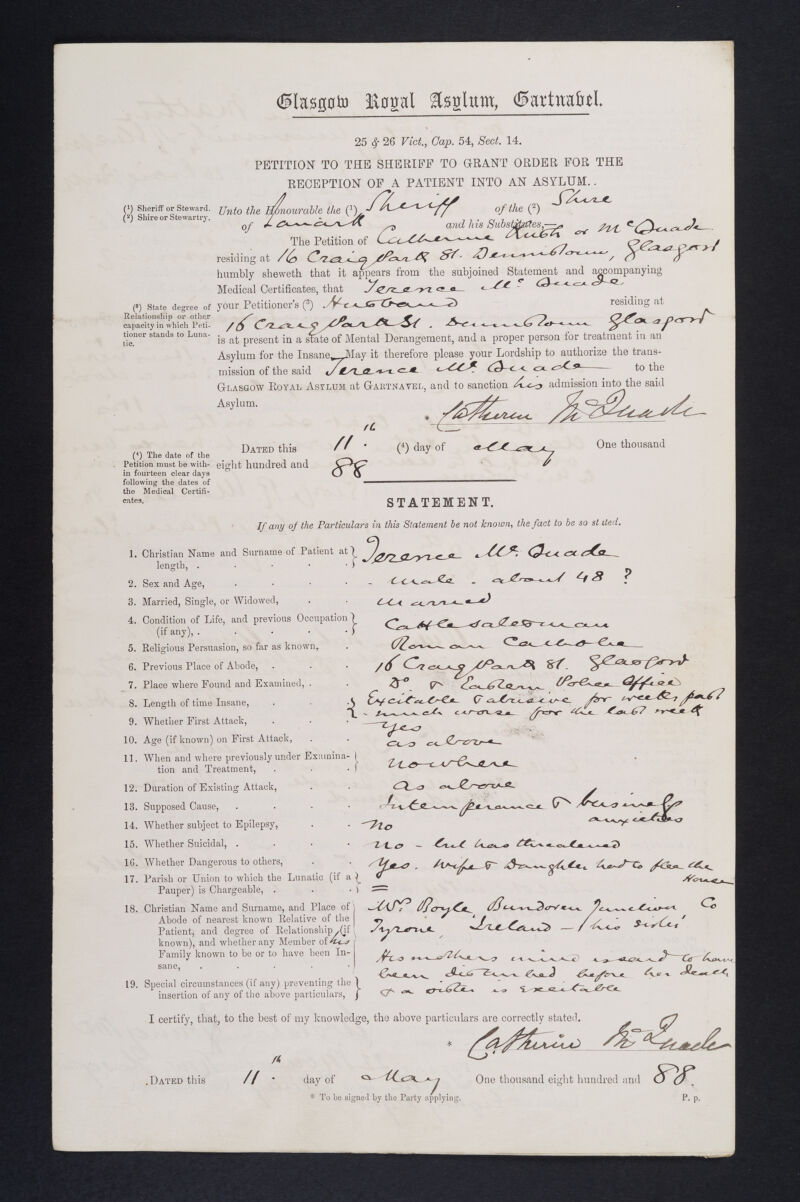 Glasgow Royal Asylum, Gartnavel.
25 & 26 Vict., Cap. 54, Sect. 14.
PETITION TO THE SHERIFF TO GRANT ORDER FOR THE
RECEPTION OF A PATIENT INTO AN ASYLUM.
(1) Sheriff or Steward.
(2) Shire or Stewartry.
Unto the Honourable the (1) Sheriff of the (2) Shire
of Lanark and his Substitutes,—
The Petition of Catherine or McQuade
residing at 16 Craig Park St. Dennistoun, Glasgow
humbly sheweth that it appears from the subjoined Statement and accompanying
Medical Certificates, that Terence McQuade
(3) State degree of
Relationship or other
capacity in which Peti-
tioner stands to Luna-
tic.
your Petitioner's (3) Husband residing at
16 Craig Park St. Dennistoun Glasgow
is at present in a state of Mental Derangement, and a proper person for treatment in an
Asylum for the Insane. May it therefore please your Lordship to authorize the trans-
mission of the said Terence McQuade to the
GLASGOW ROYAL ASYLUM at GARTNAVEL, and to sanction his admission into the said
Asylum.
* Catherin McQuade
(4) The date of the
Petition must be with-
in fourteen clear days
following the dates of
the Medical Certifi-
cates.
DATED this 11th (4) day of May One thousand
eight hundred and 88
STATEMENT.
If any of the Particulars in this Statement be not known, the fact to be so stated.
1. Christian Name and Surname of Patient at
length, . Terence McQuade
2. Sex and Age, - male - about 48 ?
3. Married, Single, or Widowed, married
4. Condition of Life, and previous Occupation
(if any), . Cattle salesman
5. Religious Persuasion, so far as known, Roman Catholic
6. Previous Place of Abode, 16 Craig Park St. Glasgow
7. Place where Found and Examined, Do & Eastern Police Office
8. Length of time Insane, Excitable & abusive for weeks past
- much worse for the last week
9. Whether First Attack, Yes
10. Age (if known) on First Attack, as above
11. When and where previously under Examina-
tion and Treatment, nowhere
12. Duration of Existing Attack, as above
13. Supposed Cause, Intemperance & business
anxieties
14. Whether subject to Epilepsy, No
15. Whether Suicidal, no - but has threatened
16. Whether Dangerous to others, Yes. Wife & Daughter had to flee the
House
17. Parish or Union to which the Lunatic (if a
Pauper) is Chargeable, =
18. Christian Name and Surname, and Place of
Abode of nearest known Relative of the
Patient, and degree of Relationship (if
known), and whether any Member of his
Family known to be or to have been In-
sane,
Mrs Boyle, Bundoren Junction Co
Tyrone, Ireland - his sister
His mothers mind is said to have
been disturbed before her death
& a sister is excitable
19. Special circumstances (if any) preventing the
insertion of any of the above particulars,
I certify, that, to the best of my knowledge, the above particulars are correctly stated.
* Catherin McQuade
DATED this 11th day of May One thousand eight hundred and 88.
* To be signed by the Party applying.
P. p.